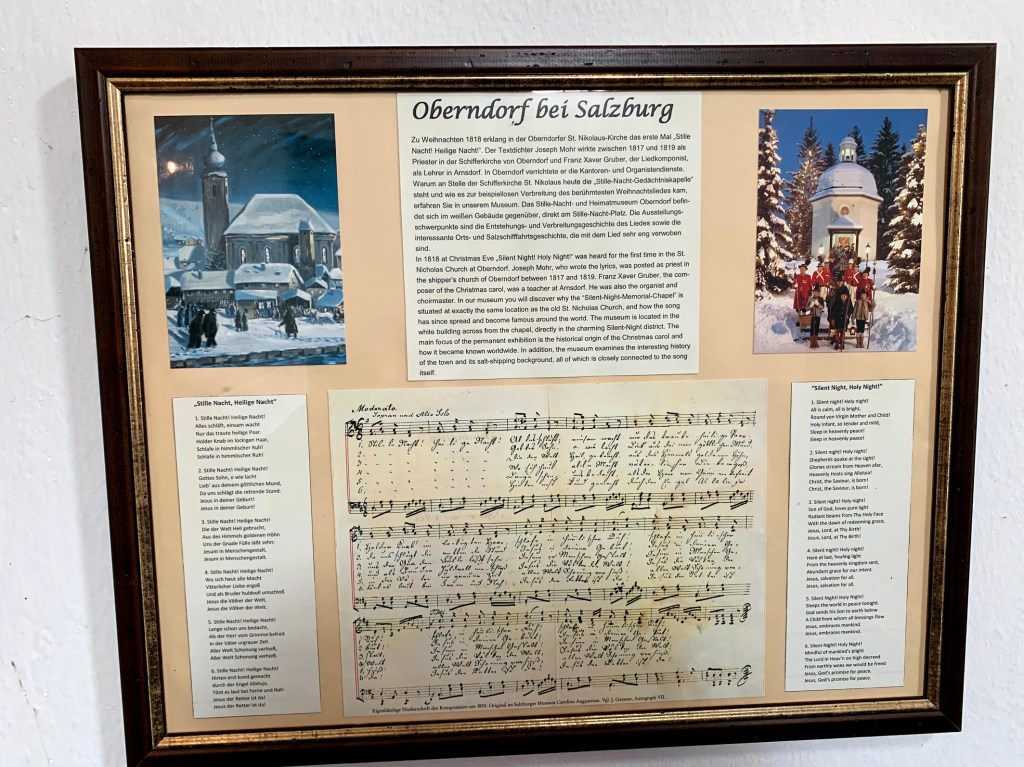 Oberndorf bei Salzburg
Zu Weihnachten 1818 erklang in der Oberndorfer St. Nikolaus-Kirche das erste Mal „Stille
Nacht! Heilige Nacht!“. Der Textdichter Joseph Mohr wirkte zwischen 1817 und 1819 als
Priester in der Schifferkirche von Oberndorf und Franz Xaver Gruber, der Liedkomponist,
als Lehrer in Arnsdorf. In Oberndorf verrichtete er die Kantoren- und Organistendienste.
Warum an Stelle der Schifferkirche St. Nikolaus heute die „Stille-Nacht-Gedächtniskapelle“
steht und wie es zur beispiellosen Verbreitung des berühmtesten Weihnachtsliedes kam,
erfahren Sie in unserem Museum. Das Stille-Nacht- und Heimatmuseum Oberndorf befin-
det sich im weißen Gebäude gegenüber, direkt am Stille-Nacht-Platz. Die Ausstellungs-
schwerpunkte sind die Entstehungs- und Verbreitungsgeschichte des Liedes sowie die
interessante Orts- und Salzschifffahrtsgeschichte, die mit dem Lied sehr eng verwoben
sind.
In 1818 at Christmas Eve „Silent Night! Holy Night!“ was heard for the first time in the St.
Nicholas Church at Oberndorf. Joseph Mohr, who wrote the lyrics, was posted as priest in
the shipper's church of Oberndorf between 1817 and 1819. Franz Xaver Gruber, the com-
poser of the Christmas carol, was a teacher at Arnsdorf. He was also the organist and
choirmaster. In our museum you will discover why the “Silent-Night-Memorial-Chapel” is
situated at exactly the same location as the old St. Nicholas Church, and how the song
has since spread and become famous around the world. The museum is located in the
white building across from the chapel, directly in the charming Silent-Night district. The
main focus of the permanent exhibition is the historical origin of the Christmas carol and
how it became known worldwide. In addition, the museum examines the interesting history
of the town and its salt-shipping background, all of which is closely connected to the song
itself.
„Stille Nacht, Heilige Nacht“
1. Stille Nacht! Heilige Nacht!
Alles schläft, einsam wacht
Nur das traute heilige Paar.
Holder Knab im lockigen Haar,
Schlafe in himmlischer Ruh!
Schlafe in himmlischer Ruh!
2. Stille Nacht! Heilige Nacht!
Gottes Sohn, o wie lacht
Lieb' aus deinem göttlichen Mund,
Da uns schlägt die rettende Stund.
Jesus in deiner Geburt!
Jesus in deiner Geburt!
3. Stille Nacht! Heilige Nacht!
Die der Welt Heil gebracht,
Aus des Himmels goldenen Höhn
Uns der Gnade Fülle läßt sehn:
Jesum in Menschengestalt,
Jesum in Menschengestalt.
4. Stille Nacht! Heilige Nacht!
Wo sich heut alle Macht
Väterlicher Liebe ergoß
Und als Bruder huldvoll umschloß
Jesus die Völker der Welt,
Jesus die Völker der Welt.
5. Stille Nacht! Heilige Nacht!
Lange schon uns bedacht,
Als der Herr vom Grimme befreit
In der Väter urgrauer Zeit
Aller Welt Schonung verhieß,
Aller Welt Schonung verhieß.
6. Stille Nacht! Heilige Nacht!
Hirten erst kund gemacht
durch der Engel Alleluja,
Tönt es laut bei Ferne und Nah:
Jesus der Retter ist da!
Jesus der Retter ist da!
Moderato
Sopran und Alto Solo
Eigenhändige Niederschrift des Komponisten um Original im Salzburger Museum Carolino Augusteum. Vgl. J. Gassner, Autograph VII.
“Silent Night, Holy Night!”
1. Silent night! Holy night!
All is calm, all is bright,
Round yon Virgin Mother and Child!
Holy Infant, so tender and mild,
Sleep in heavenly peace!
Sleep in heavenly peace!
2. Silent night! Holy night!
Shepherds quake at the sight!
Glories stream from Heaven afar,
Heavenly Hosts sing Alleluia!
Christ, the Saviour, is born!
Christ, the Saviour, is born!
3. Silent night! Holy night!
Son of God, loves pure light
Radiant beams from Thy Holy Face
With the dawn of redeeming grace,
Jesus, Lord, at Thy Birth!
Jesus, Lord, at Thy Birth!
4. Silent night! Holy night!
Here at last, healing light
From the heavenly kingdom sent,
Abundant grace for our intent.
Jesus, salvation for all.
Jesus, salvation for all.
5. Silent Night! Holy Night!
Sleeps the world in peace tonight.
God sends his Son to earth below
A Child from whom all blessings flow
Jesus, embraces mankind.
Jesus, embraces mankind.
6. Silent Night! Holy Night!
Mindful of mankind's plight
The Lord in Heav'n on high decreed
From earthly woes we would be freed
Jesus, God's promise for peace.
Jesus, God's promise for peace.